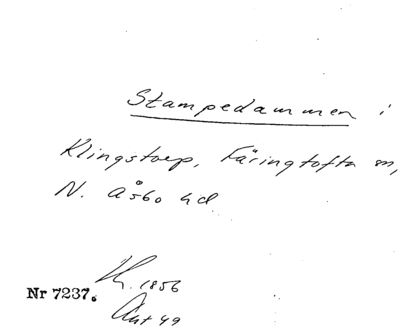 Stampedammen i
Klingstorp, Färingtofta sn,
N. Åsbo hd
Nr 7237.
1856
49